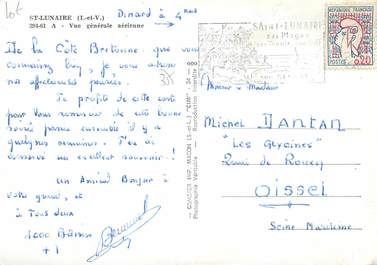 Lot
ST-LUNAIRE (I.-et-V.)
294-61 A - Vue générale aérienne
Dinard à 4 kms
SAINT-LUNAIRE
ses Plages
POSTES 0,20
De la Côte Bretonne que vous
connaissez bien, je vous adresse
nos affectueuses pensées.
38
Je profite de cette carte
pour vous remercier de cette bonne
soirée passée ensemble il y a
quelques semaines. J'en ai
conservé un excellent souvenir !
Un Amical Bonjour à
votre grand, et
à Tous deux
1000 Bises
+ 1
COMBIER IMP. MACON (S.-et-L.) "CIM"
Photographie Véritable - Reproduction interdite
Monsieur & Madame
Michel DANTAN
"Les Glycines"
Quai de Rouen
OISSEL
Seine Maritime